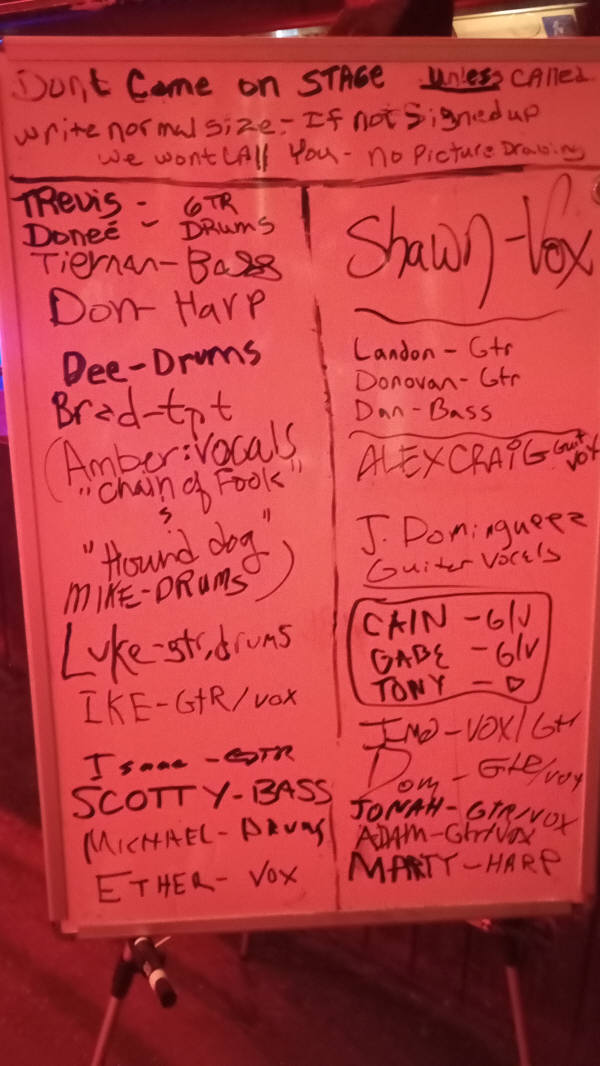 Dont Come on STAGE Unless CAlled
write normal size - If not Signed up
we wont CAll You - no Picture Drawing
TRevis - GTR
Doneé - DRums
Tiernan - Bass
Don - Harp
Dee - Drums
Brad - tpt
(Amber: Vocals
"Chain of Fools"
"Hound dog"
MIKE - DRUMS)
Luke - gtr, drums
IKE - GtR/vox
Isaac - GTR
SCOTTY - BASS
MICHAEL - DRUMS
ETHER - VOX
Shawn - Vox
Landon - Gtr
Donovan - Gtr
Dan - Bass
ALEX CRAIG Guit VOX
J. Domingueez
Guiter Vocels
CAIN - G/V
GABE - G/V
TONY - D
- VOX/Gtr
Dom - GtR/vox
JONAH - GTR/VOX
ADAM - Gtr/Vox
MARTY - HARP